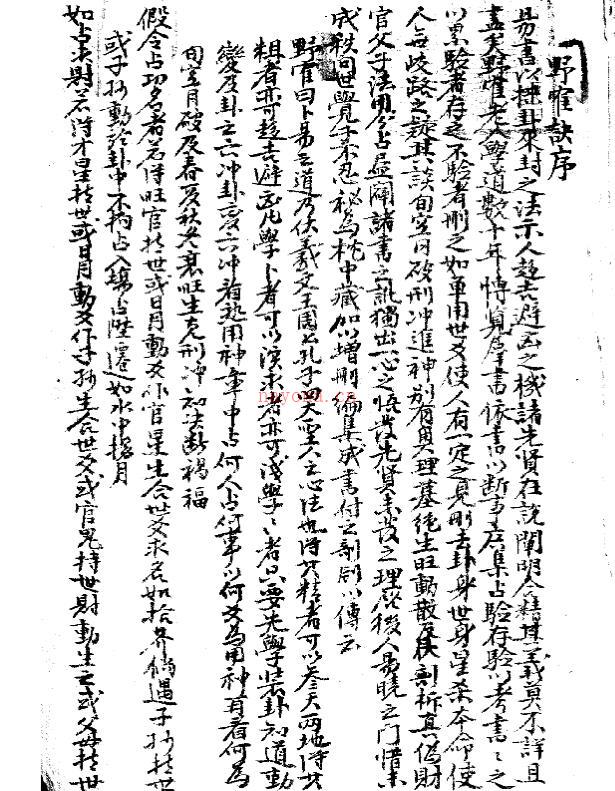 野雈訣序
易書以揲卦來卦之法示人趨吉避凶之機諸先賢註說闡明會精其義莫不詳且
盡矣野雈老人學道數十年博覧群書依書以断事应集占驗存驗以考書々之
以累驗者存之不驗者刪之如单用世爻使人有一定之見刪去卦身世身星杀本命使
人無歧路之疑其談旬空月破刑冲進神别有真理墓绝生旺動散反伏剖析真偽財
官父子法用分占盡闢諸書之訛独出一心之悟發先賢未發之理啟後人易曉之门惜未
成秩回世覺子不忍秘為枕中藏加以增刪編集成書付之剞劂以傳云
野雈曰卜易之道乃伏羲文王周公孔子四大聖人之心法也得其精者可以参天两地得其
粗者亦趨吉避凶凡學卜者可以深求者亦可淺學々者只要先學裝卦知道動
變及卦之六冲卦变六冲看熟用神章中占何人占何事以何爻為用神首看何為
旬空月破及春夏秋冬衰旺生克刑冲知決断禍福
假令占功名者若得旺官持世或日月動爻作官星生合世爻求名如拾芥倘遇子孙持世
或子孙動於卦中不拘占入場占陞遷如水中撈月
如占求財若得才星持世或日月動爻作子孙生合世爻或官鬼持世財動生之或父母持世
nayona.cn